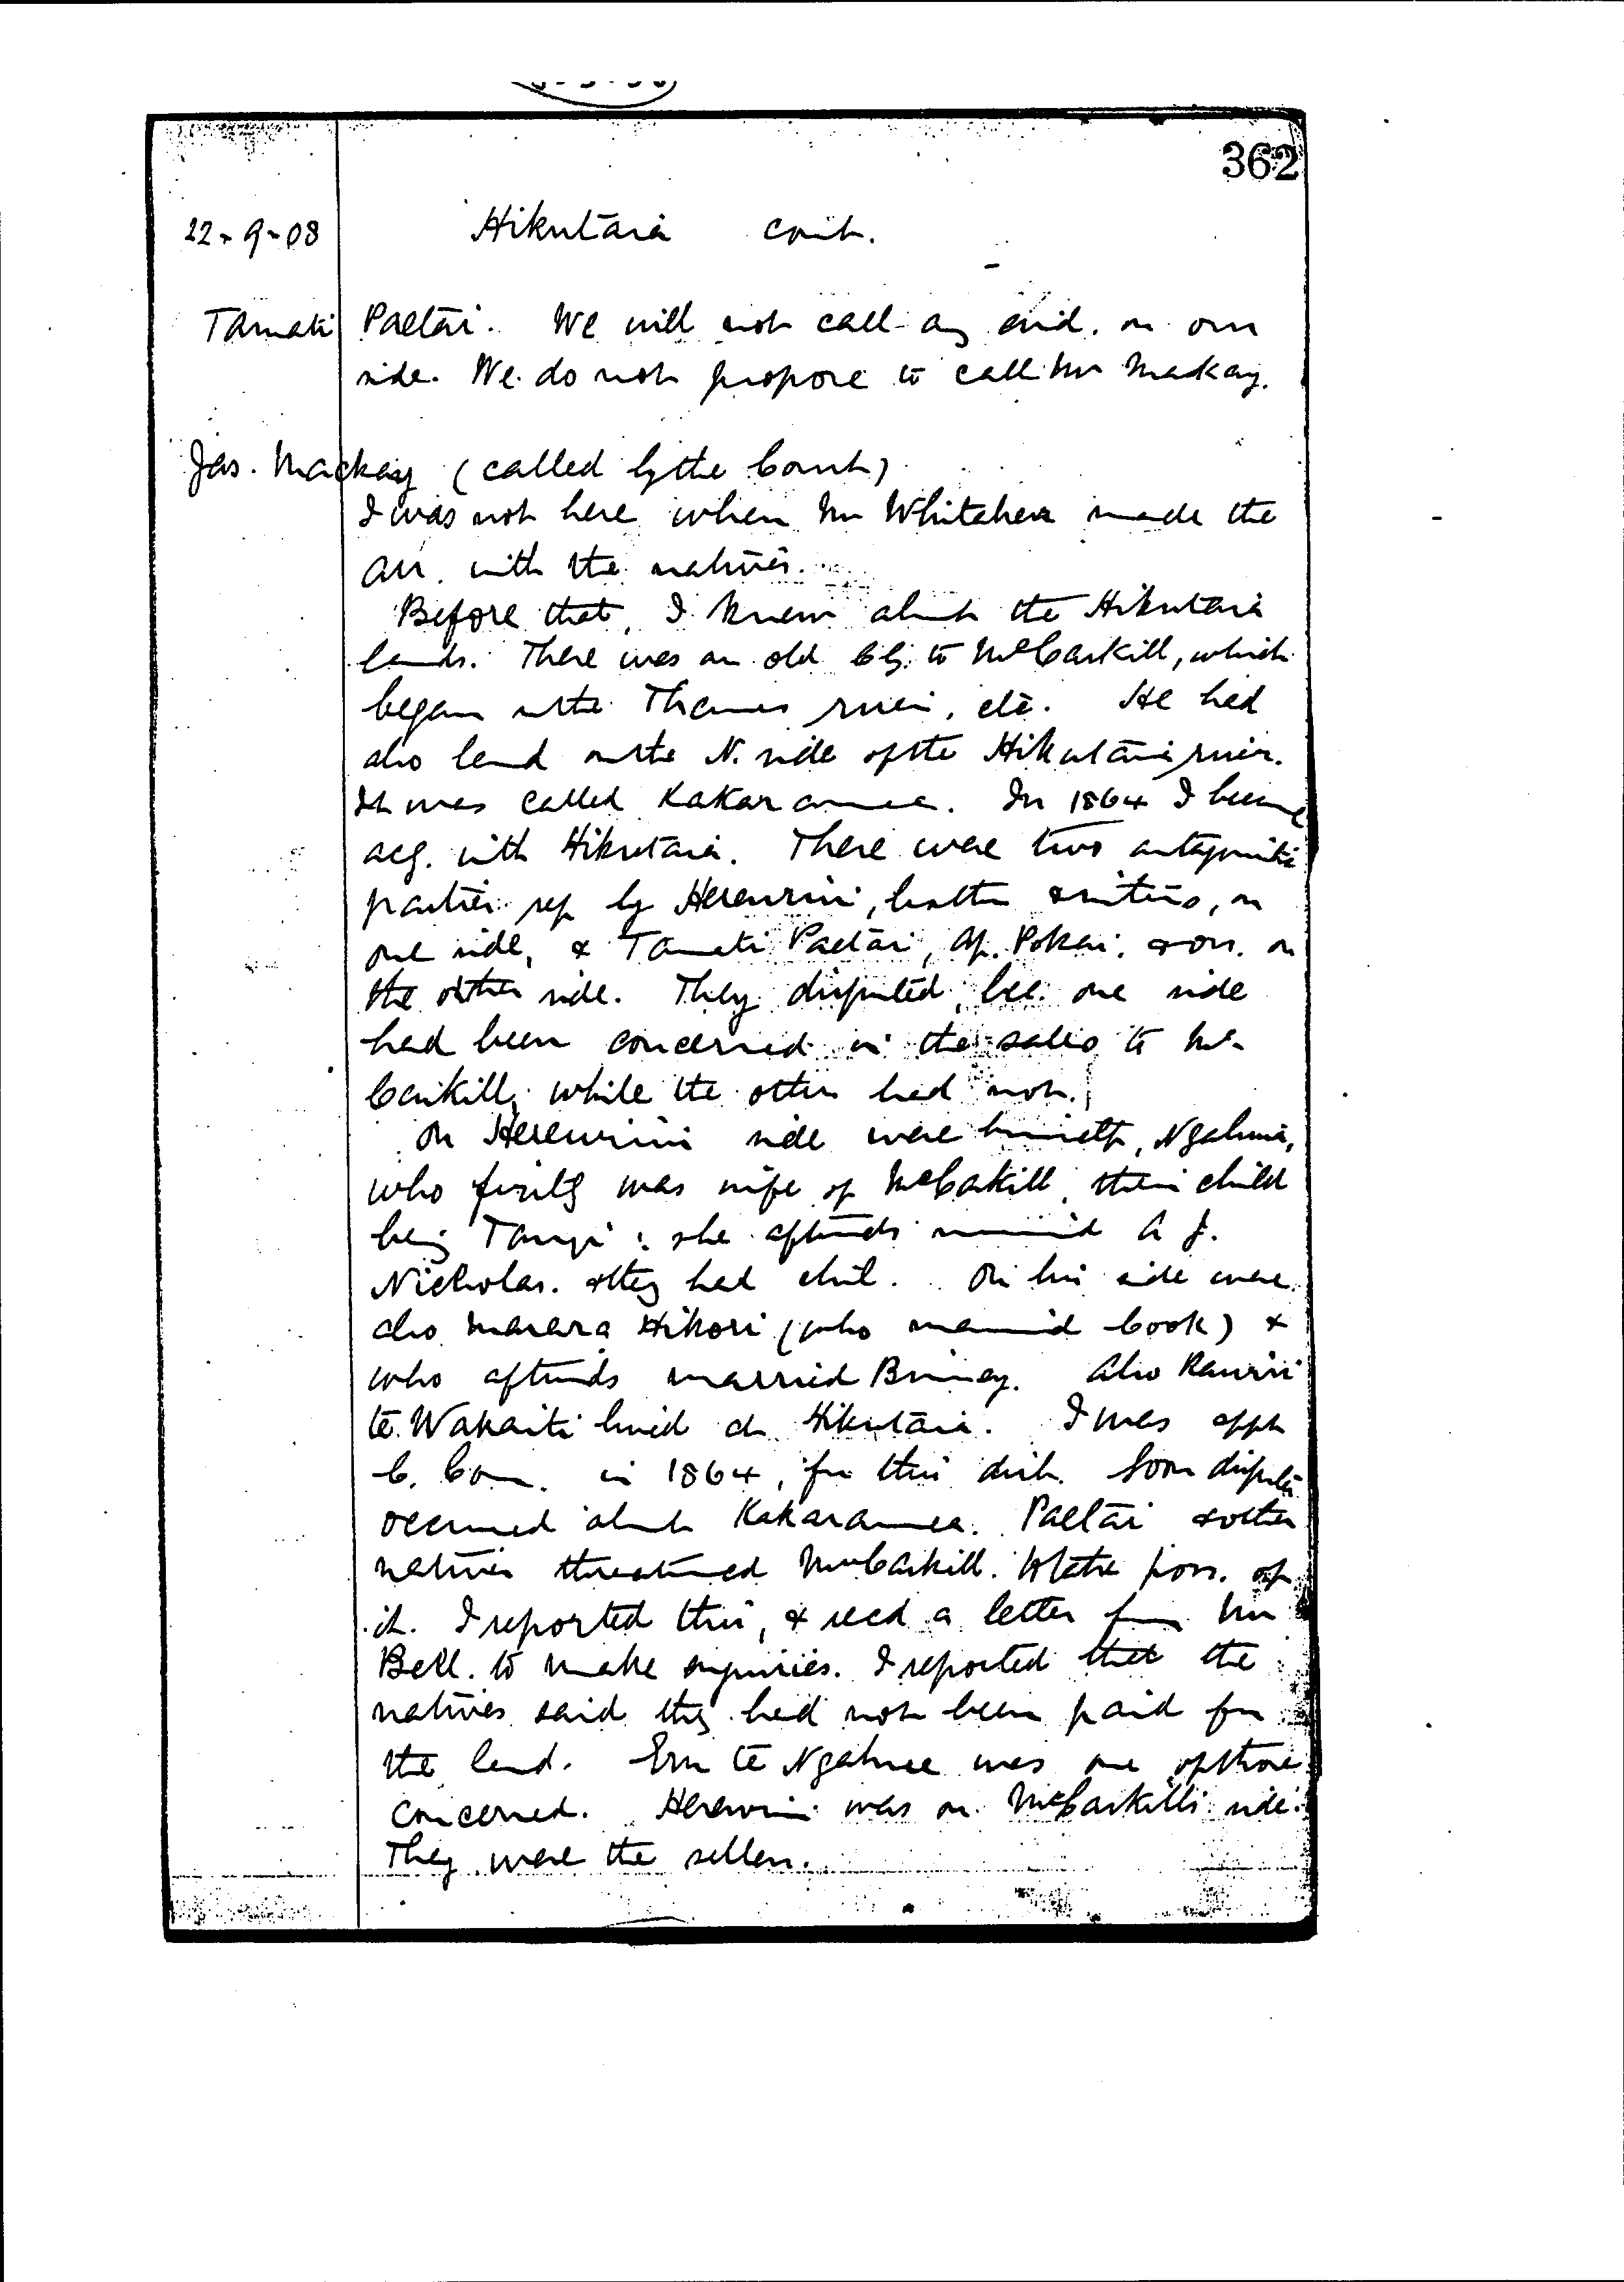 362
22-9-08 Hikutaia cont.
Tamati Paetai. We will not call any evid. on our
side. We do not propose to call Mr Mackay.
Jas. Mackay (called by the Court)
I was not here when Mr Whitaker made the
arr. with the natives.
Before that, I knew about the Hikutaia
lands. There was an old to McCaskill, which
began at the Thames river, etc. He had
also land on the N. side of the Hikutaia river.
It was called Kakaramea. In 1864 I became
acq. with Hikutaia. There were two antagonistic
parties rep by Herewini, brother & sisters, on
one side, & Tamati Paetai, Ap. Pokai, & ors. on
the other side. They disputed, bec. one side
had been concerned in the sales to Mc-
Caskill, while the other had not.
On Herewini side were himself, Ngahuia,
who firstly was wife of McCaskill, their child
being : she aftwds married A J.
Nicholas. & they had chil. On his side were
also Marara Hikori (who married Cook) &
who aftwds married Binney. Also Rawiri
te Wakaiti lived at Hikutaia. I was appt
C. Com. in 1864, for this dist. Some disputes
occurred about Kakaramea. Paetai & other
natives threatened McCaskill. to take poss. of
it. I reported this, & recd a letter from Mr
Bell. to make enquiries. I reported that the
natives said they had not been paid for
the land. te was one of those
concerned. Herewini was on McCaskill's side.
They were the sellers.